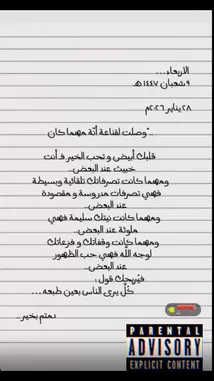 الأربعاء...
٩ شعبان ١٤٤٧ هـ
٢٨ يناير ٢٠٢٦م
..."وصلت لقناعة أنّه مهما كان
قلبك أبيض و تحب الخير فـ أنت
خبيث عند البعض..
ومهما كانت تصرفاتك تلقائية وبسيطة
فهي تصرفات مدروسة و مقصودة
عند البعض..
ومهما كانت نيتك سليمة فهي
ملوثة عند البعض..
ومهما كانت وقفاتك و فزعاتك
لوجه الله فهي حب الظهور
عند البعض..
فيُريحك قول :
كلٌّ يرى الناس بعين طبعه ...
دمتم بخير..
PARENTAL
ADVISORY
EXPLICIT CONTENT